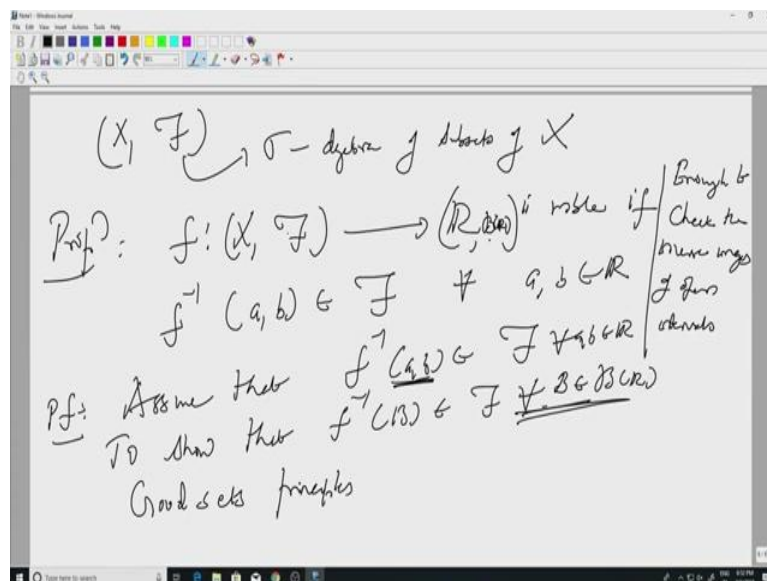 Note1 - Windows Journal
File Edit View Insert Actions Tools Help
(X, ℱ) → σ - algebra of subsets of X
Propⁿ: f: (X, ℱ) ⟶ (ℝ, B(ℝ)) is mble if
f⁻¹ (a, b) ∈ ℱ ∀ a, b ∈ ℝ
Enough to
Check the
inverse images
of open
intervals
Pf: Assume that f⁻¹ (a, b) ∈ ℱ ∀ a, b ∈ ℝ
To show that f⁻¹ (B) ∈ ℱ ∀ B ∈ B(ℝ)
Good sets principles
Type here to search